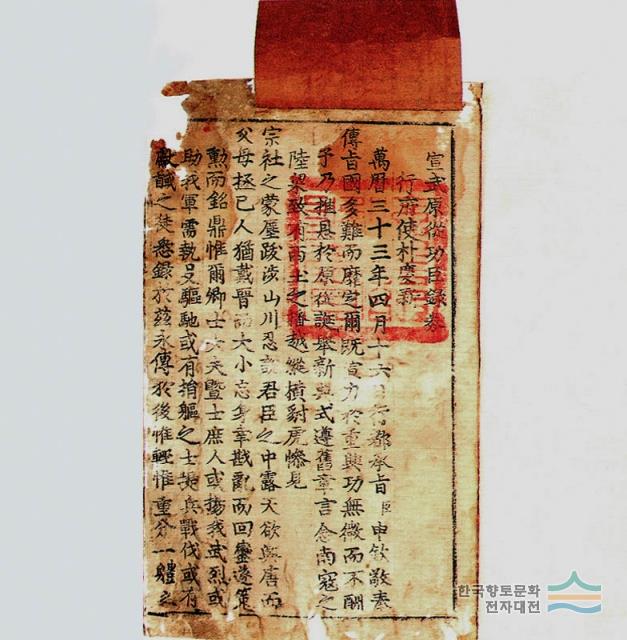 宣武原從功臣錄券
行府使朴慶新
萬曆三十三年四月十六日行都承旨臣申欽敬奉
傳旨國多難而靡定爾旣宣力於重興功無微而不酬
予乃推恩於原從誕擧新典式遵舊章言念南寇之
陸梁致有西土之播越縱橫豺虎慘見
宗社之蒙塵跋涉山川忍說君臣之中露天欲興唐而
父母拯己人猶戴晉而大小忘身幸戡亂而回鑾遂策
勳而銘鼎惟爾卿士大夫曁士庶人或揚我武烈或
助我軍需執殳驅馳或有捐軀之士操兵戰伐或有
獻馘之徒悉錄於玆永傳於後惟輕惟重分一體之
한국향토문화
전자대전